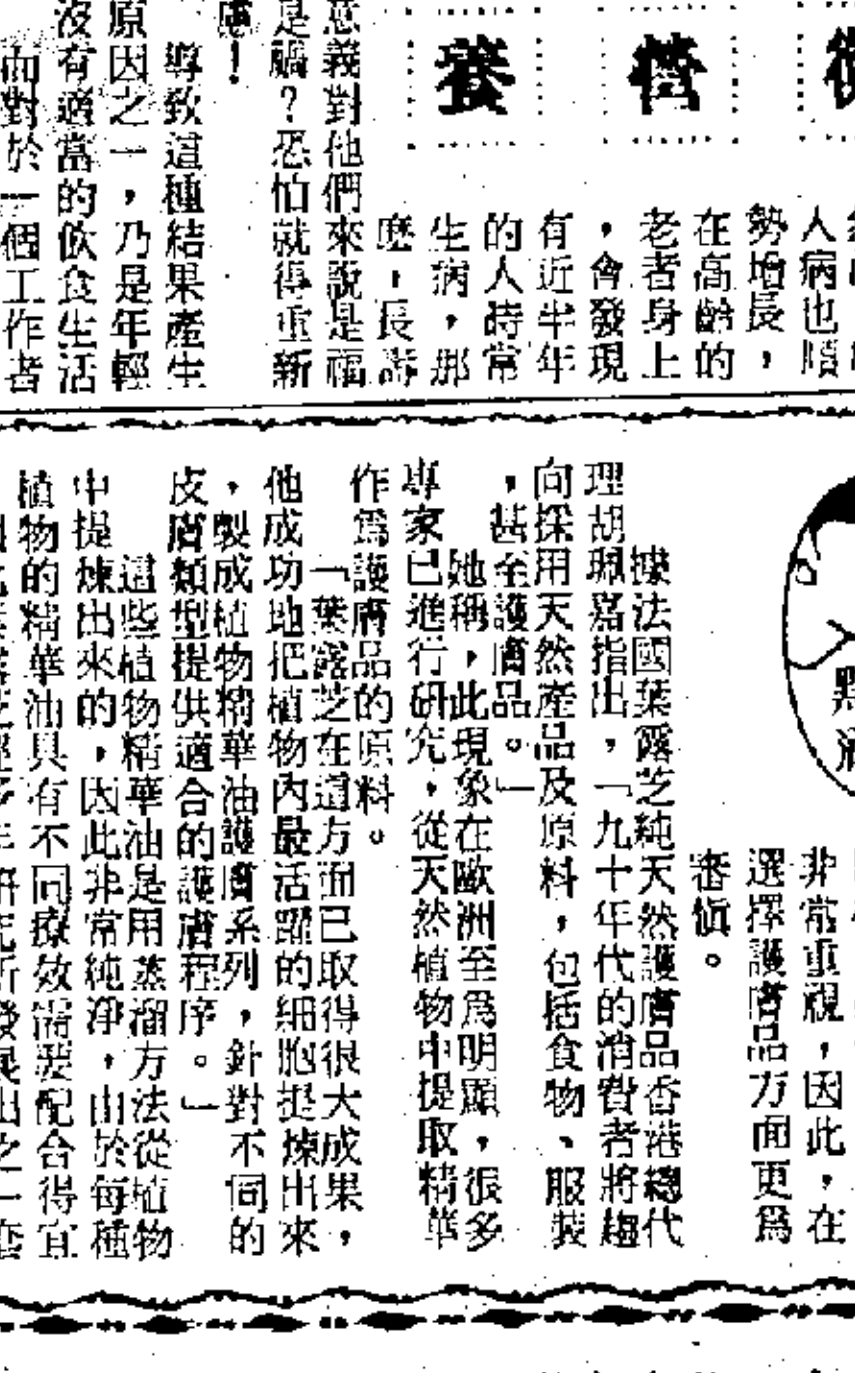 營
養
人病也
勢增長，
在高齡的
老者身上
，會發現
有近半年
的人時常
生病，那
麼，長壽
意義對他們來說是福
是禍？恐怕就得重新
慮！
導致這種結果產生
原因之一，乃是年輕
沒有適當的飲食生活
而對於一個工作者
非常重視，因此，在
選擇護膚品方面更爲
審愼。
據法國葉露芝純天然護膚品香港總代
理胡珮嘉指出，「九十年代的消費者將趨
向採用天然產品及原料，包括食物、服裝
，甚至護膚品。」
她稱，此現象在歐洲至爲明顯，很多
專家已進行研究，從天然植物中提取精華
作爲護膚品的原料。
「葉露芝在這方面已取得很大成果，
他成功地把植物內最活躍的細胞提煉出來
，製成植物精華油護膚系列，針對不同的
皮膚類型提供適合的護膚程序。」
這些植物精華油是用蒸溜方法從植物
中提煉出來的，因此非常純淨，由於每種
植物的精華油具有不同療效需要配合得宜